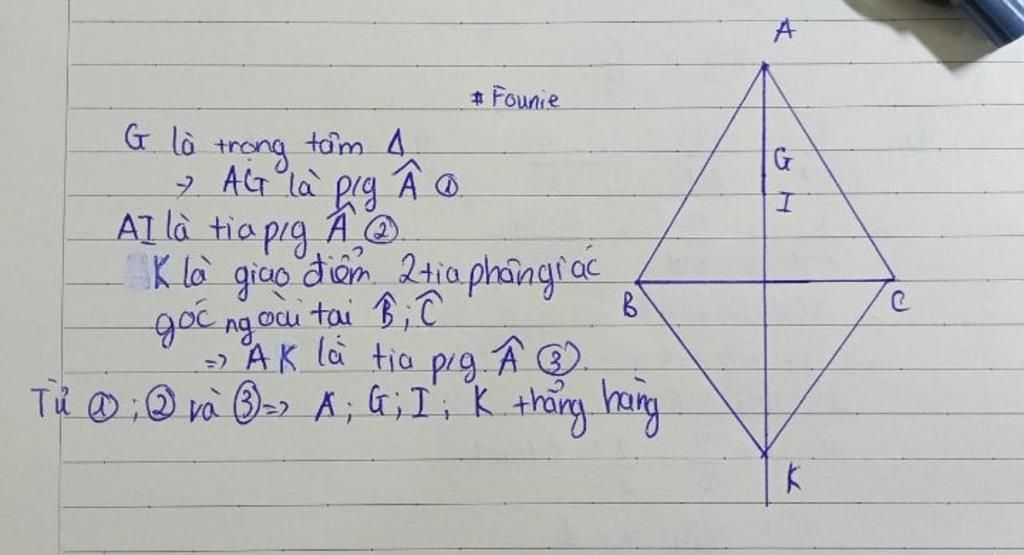 # Founie
G là trọng tâm Δ
→ AG là p/g Â ①
AI là tia p/g Â ②
K là giao điểm 2 tia phân giác
góc ngoài tại B̂; Ĉ
=> AK là tia p/g Â ③.
Từ ①; ② và ③ => A; G; I; K thẳng hàng
A
G
I
B
C
K